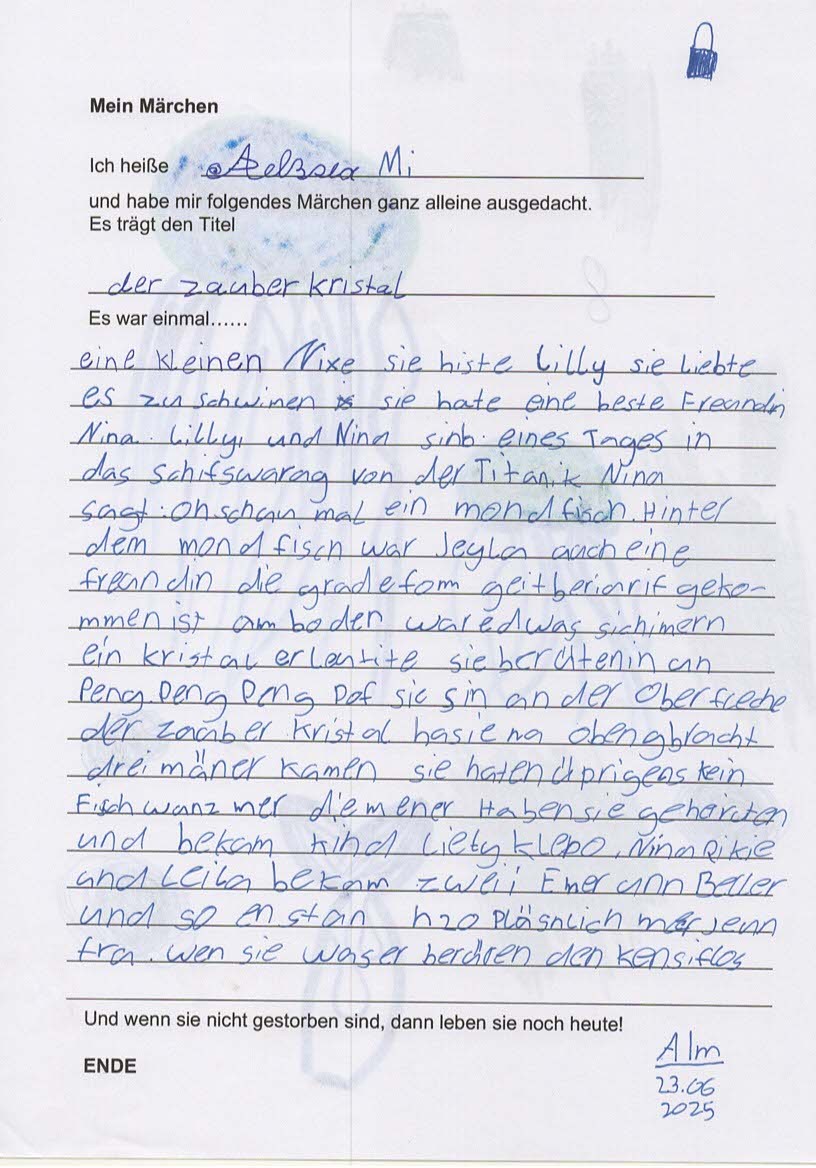 Mein Märchen
Ich heiße Mi
und habe mir folgendes Märchen ganz alleine ausgedacht.
Es trägt den Titel
der zauber kristal
Es war einmal......
eine kleinen Nixe sie histe Lilly sie liebte
es zu schwinen sie hate eine beste Freundin
Nina. Lilly, und Nina sinb eines Tages in
das schifswarag von der Titanik Nina
sagt: oh schau mal ein mondfisch. Hinter
dem mondfisch war Jeyla auch eine
freundin die grade fom geko-
mmen ist am boden war edwas sichimern
ein kristal erleutite sie berütenin un
Peng Peng Peng Paf sie sin an der Oberfleche
der zauber kristal hasie na oben gbracht
drei mäner kamen sie haten üprigens kein
Fischwanz mer die mener Haben sie
und bekam kind klebo, Nina Rikie
und Leila bekam zweii Emer unn Beller
und so enstan h2o
fra. wen sie waser berüren den
Und wenn sie nicht gestorben sind, dann leben sie noch heute!
ENDE
Alm
23.06
2025